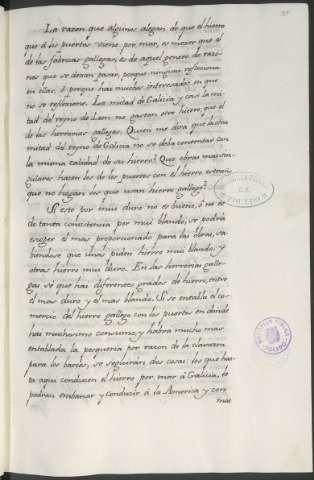 La razon que algunos alegan de que el hierro
que á los puertos viene por mar, es mejor que el
de las fabricas gallegas, es de aquel genero de razo-
nes que se dexan pasar, porque ninguno reflexiona
en ellas, ó porque hai muchos interesados en que
no se reflexione. La mitad de Galicia y casi la mi-
tad del reyno de Leon no gastan otro hierro, que el
de las herrerias gallegas. Quien me dirá que la otra
mitad del reyno de Galicia no se deba contentar con
la misma calidad de su hierro? Que obras mas sin-
gulares hacen los de los puertos con el hierro estraño
que no hagan los que usan hierro gallego?
Si esto por mui duro no es bueno, ó no es
de tanta consistencia por mui blando, se podria
escoger el mas proporcionado para las obras, sa-
biendose que unas piden hierro mui blando, y
otras hierro mui duro. En las herrerias galle-
gas sé que hai diferentes grados de hierro, entre
el mas duro y el mas blando. Si se entabla el co-
mercio del hierro gallego con los puertos en donde
hai muchisimo consumo, y habrá mucho mas
entablada la pesqueria por razon de la clavazon
para los barcos, se seguirán dos cosas: los que has-
ta aqui conducen el hierro por mar á Galicia, lo
podran embarcar y conducir á la America y con
mas